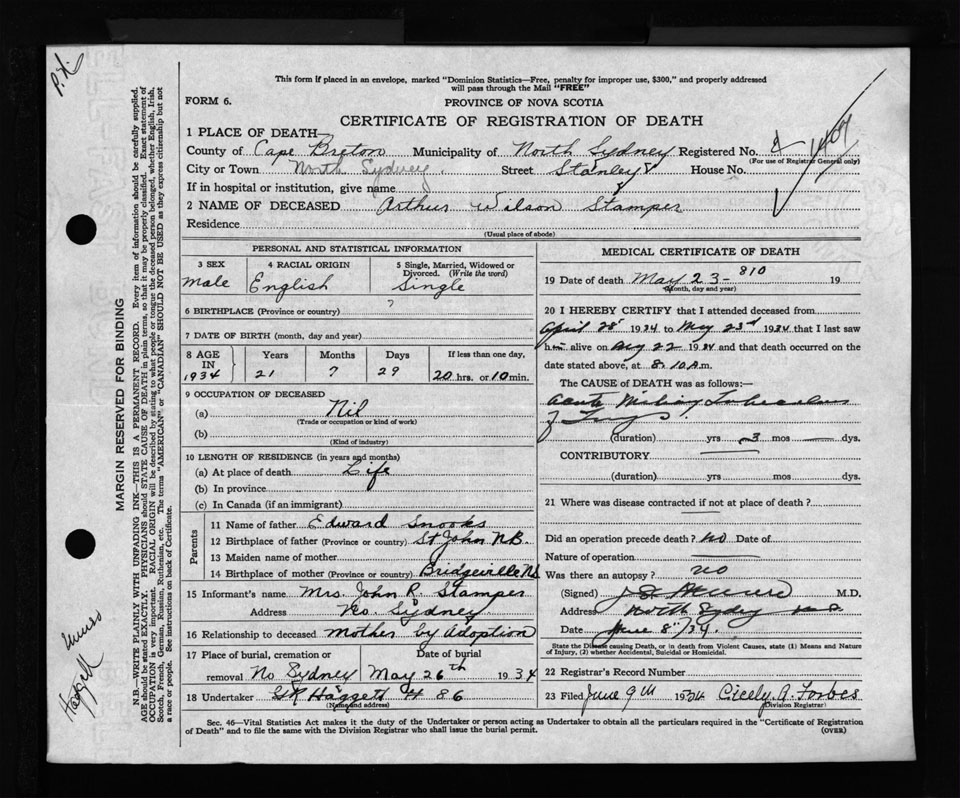 P.X.
This form if placed in an envelope, marked "Dominion Statistics—Free, penalty for improper use, $300," and properly addressed
will pass through the Mail "FREE"
FORM 6.
PROVINCE OF NOVA SCOTIA
CERTIFICATE OF REGISTRATION OF DEATH
1 PLACE OF DEATH
County of Cape Breton Municipality of North Sydney Registered No. 1407
(For use of Registrar General only)
City or Town North Sydney. Street Stanley House No.
If in hospital or institution, give name
2 NAME OF DECEASED Arthur Wilson Stamper
Residence
(Usual place of abode)
PERSONAL AND STATISTICAL INFORMATION
3 SEX
male
4 RACIAL ORIGIN
English
5 Single, Married, Widowed or
Divorced. (Write the word)
Single
6 BIRTHPLACE (Province or country) ?
7 DATE OF BIRTH (month, day and year)
8 AGE
IN
1934
Years
21
Months
7
Days
29
If less than one day,
20 hrs. or 10 min.
9 OCCUPATION OF DECEASED
(a) Nil
(Trade or occupation or kind of work)
(b)
(Kind of industry)
10 LENGTH OF RESIDENCE (in years and months)
(a) At place of death Life
(b) In province
(c) In Canada (if an immigrant)
Parents
11 Name of father Edward Snooks
12 Birthplace of father (Province or country) St John N.B.
13 Maiden name of mother
14 Birthplace of mother (Province or country) Bridgeville N.S
15 Informant's name Mrs John R. Stamper
Address No. Sydney
16 Relationship to deceased mother by Adoption
17 Place of burial, cremation or
removal No Sydney
Date of burial
May 26th 1934
18 Undertaker Haggett 86
(Name and address)
MEDICAL CERTIFICATE OF DEATH
19 Date of death May 23 - 810 19
(Month, day and year)
20 I HEREBY CERTIFY that I attended deceased from
April 28 1934 to May 23rd 1934 that I last saw
him alive on May 22 1934 and that death occurred on the
date stated above, at 8.10 A.m.
The CAUSE OF DEATH was as follows:—
Acute Miliary Tuberculosis
of Lungs.
(duration) yrs 3 mos — dys.
CONTRIBUTORY
(duration) yrs mos dys.
21 Where was disease contracted if not at place of death?
Did an operation precede death? no Date of
Nature of operation
Was there an autopsy? no
(Signed) M.D.
Address North Sydney N S
Date June 8"/34.
State the Disease causing Death, or in death from Violent Causes, state (1) Means and
Nature of Injury, (2) whether Accidental, Suicidal or Homicidal.
22 Registrar's Record Number
23 Filed June 9th 1934 Cicely A. Forbes
(Division Registrar)
Sec. 46—Vital Statistics Act makes it the duty of the Undertaker or person acting as Undertaker to obtain all the particulars required in the "Certificate of Registration
of Death" and to file the same with the Division Registrar who shall issue the burial permit.
(OVER)
MARGIN RESERVED FOR BINDING
N.B.—WRITE PLAINLY WITH UNFADING INK—THIS IS A PERMANENT RECORD. Every item of information should be carefully supplied.
AGE should be stated EXACTLY. PHYSICIANS should STATE CAUSE OF DEATH in plain terms, so that it may be properly classified. Exact statement of
OCCUPATION is very important. RACIAL ORIGIN will be described by stating to what people or tongue the deceased person belonged, whether English, Irish,
Scotch, French, German, Russian, Ruthenian, etc. The terms "AMERICAN" or "CANADIAN" SHOULD NOT BE USED as they express citizenship but not
a race or people. See instructions on back of Certificate.
Haggett